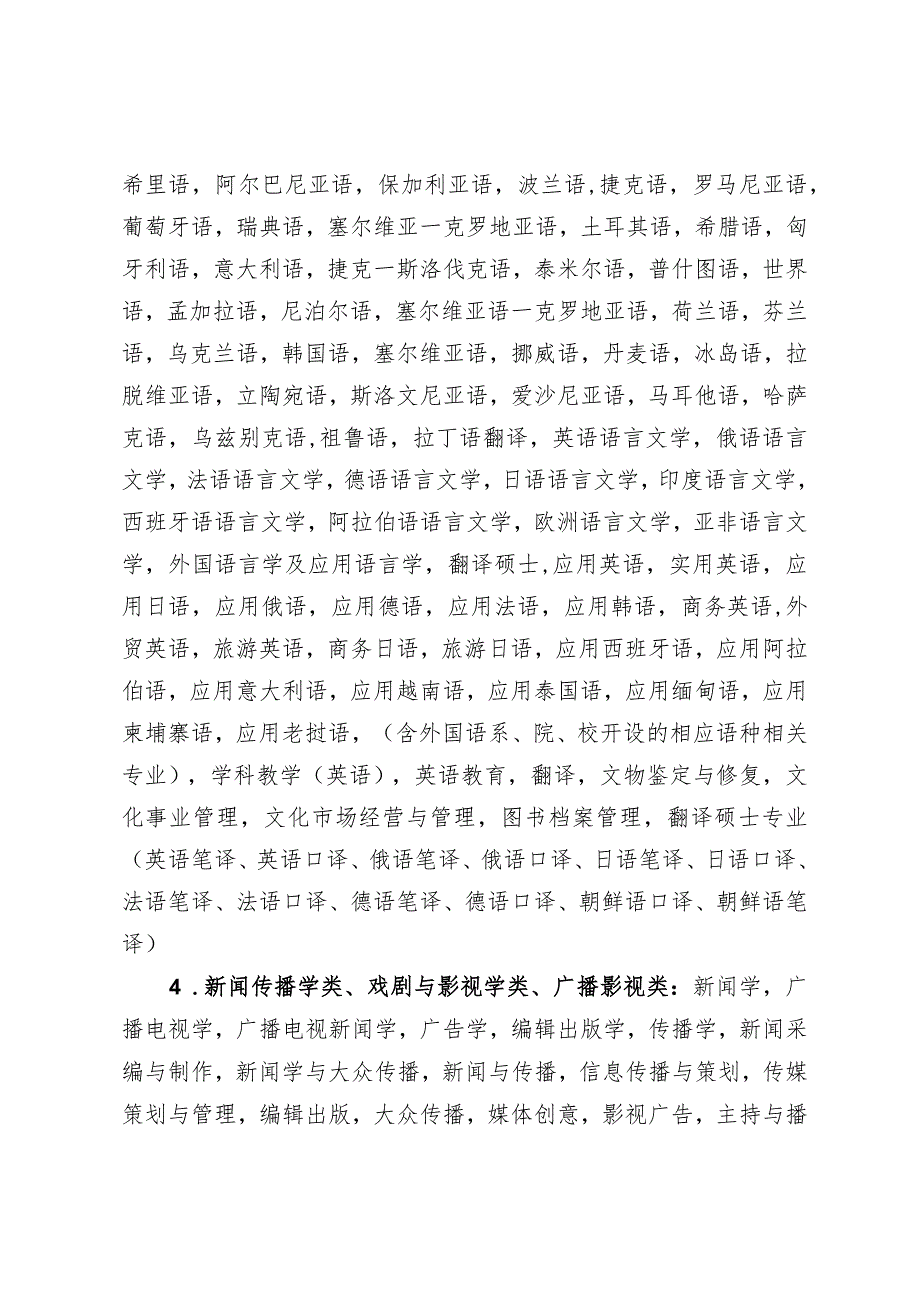 希里语，阿尔巴尼亚语，保加利亚语，波兰语,捷克语，罗马尼亚语，
葡萄牙语，瑞典语，塞尔维亚一克罗地亚语，土耳其语，希腊语，匈
牙利语，意大利语，捷克一斯洛伐克语，泰米尔语，普什图语，世界
语，孟加拉语，尼泊尔语，塞尔维亚语一克罗地亚语，荷兰语，芬兰
语，乌克兰语，韩国语，塞尔维亚语，挪威语，丹麦语，冰岛语，拉
脱维亚语，立陶宛语，斯洛文尼亚语，爱沙尼亚语，马耳他语，哈萨
克语，乌兹别克语,祖鲁语，拉丁语翻译，英语语言文学，俄语语言
文学，法语语言文学，德语语言文学，日语语言文学，印度语言文学，
西班牙语语言文学，阿拉伯语语言文学，欧洲语言文学，亚非语言文
学，外国语言学及应用语言学，翻译硕士,应用英语，实用英语，应
用日语，应用俄语，应用德语，应用法语，应用韩语，商务英语,外
贸英语，旅游英语，商务日语，旅游日语，应用西班牙语，应用阿拉
伯语，应用意大利语，应用越南语，应用泰国语，应用缅甸语，应用
柬埔寨语，应用老挝语，（含外国语系、院、校开设的相应语种相关
专业），学科教学（英语），英语教育，翻译，文物鉴定与修复，文
化事业管理，文化市场经营与管理，图书档案管理，翻译硕士专业
（英语笔译、英语口译、俄语笔译、俄语口译、日语笔译、日语口译、
法语笔译、法语口译、德语笔译、德语口译、朝鲜语口译、朝鲜语笔
译）
4 .新闻传播学类、戏剧与影视学类、广播影视类：新闻学，广
播电视学，广播电视新闻学，广告学，编辑出版学，传播学，新闻采
编与制作，新闻学与大众传播，新闻与传播，信息传播与策划，传媒
策划与管理，编辑出版，大众传播，媒体创意，影视广告，主持与播